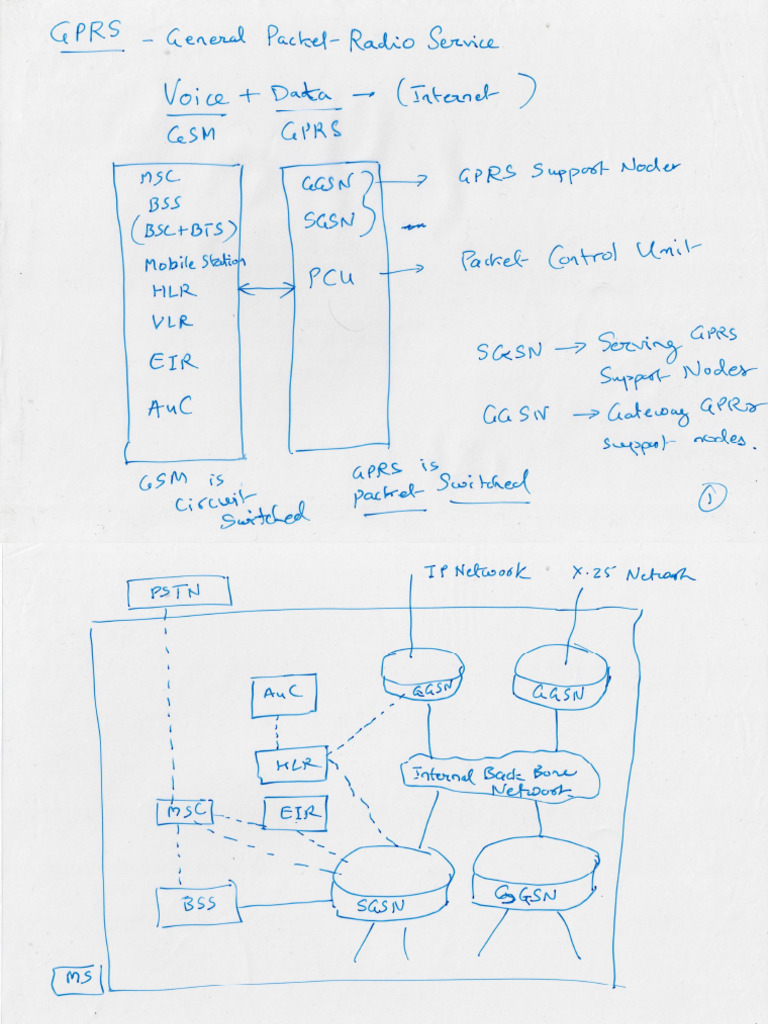 GPRS - General Packet Radio Service
Voice + Data → (Internet)
GSM GPRS
MSC
BSS
(BSC+BTS)
Mobile Station
HLR
VLR
EIR
AuC
GGSN → GPRS Support Nodes
SGSN
PCU → Packet Control Unit
SGSN → Serving GPRS
Support Nodes
GGSN → Gateway GPRS
support nodes.
GSM is
circuit
switched
GPRS is
packet switched
1
IP Network X.25 Network
PSTN
AuC
GGSN
GGSN
HLR
Internal Back Bone
Network
MSC
EIR
BSS
SGSN
GGSN
MS